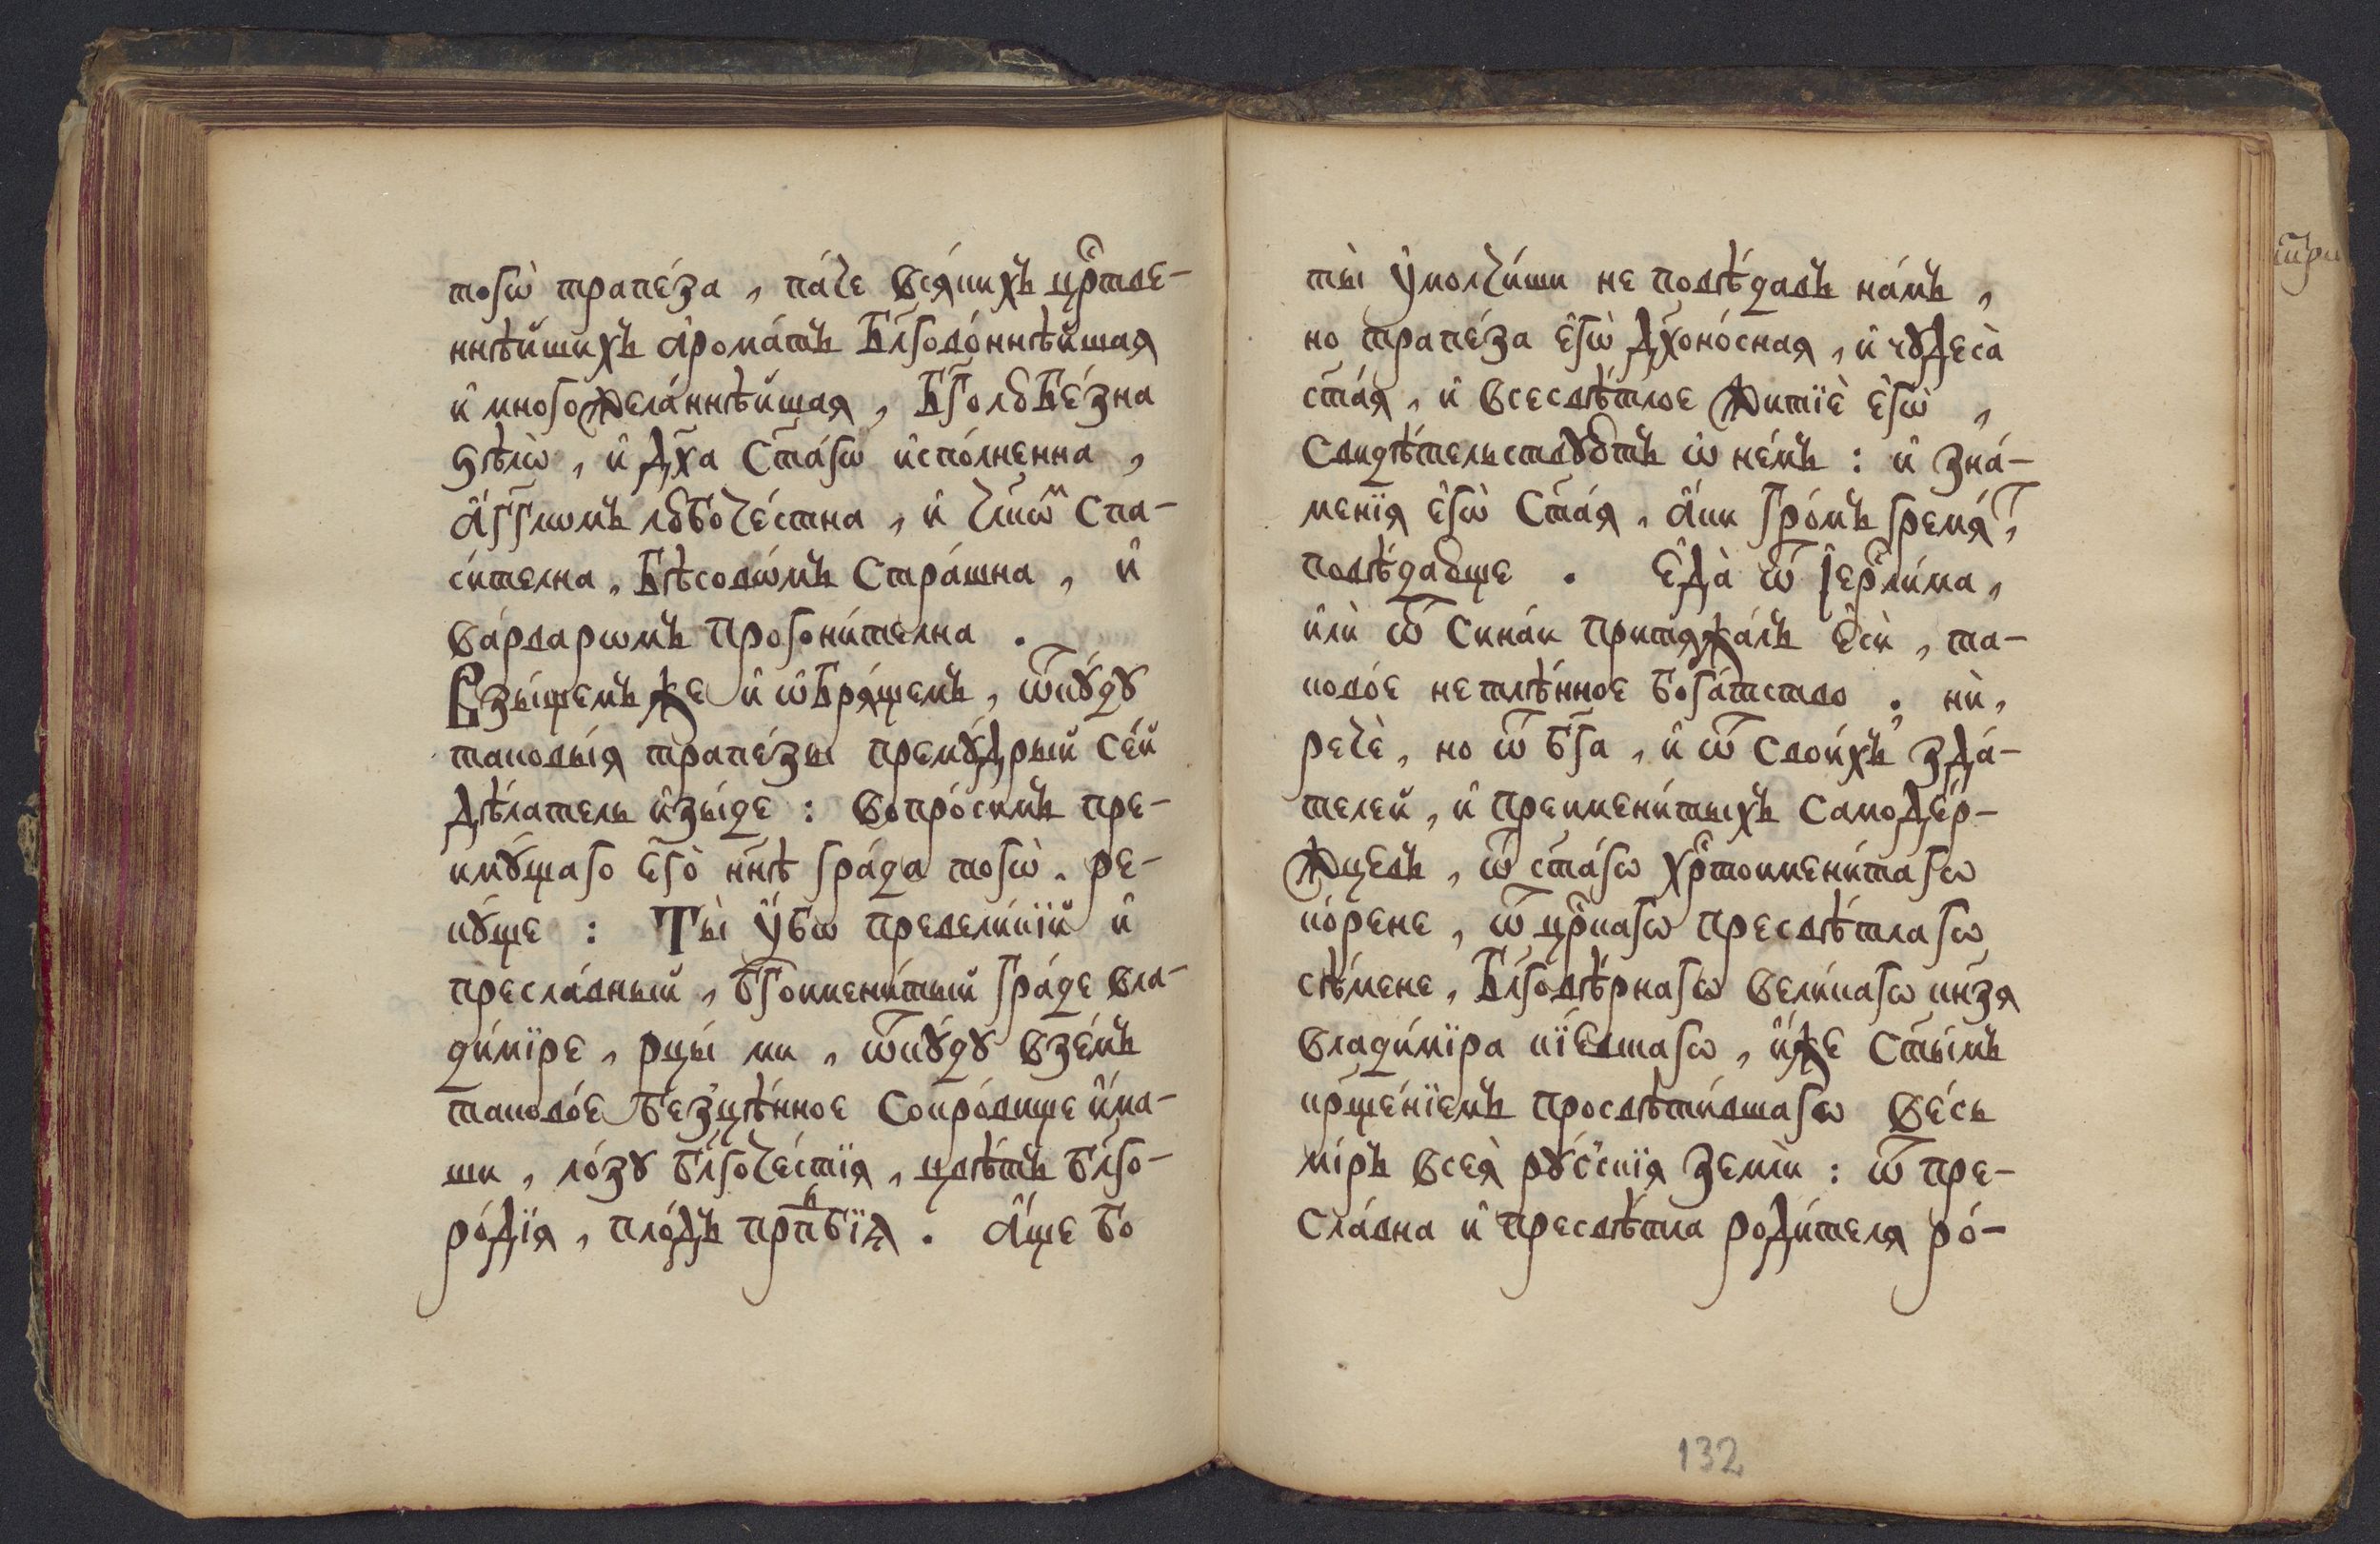 тогѡ̀ трапе́за, па́че всѧ́кихъ цр҃тве-
ннѣ́йшихъ а҆рома́тъ бл҃гово́ннѣйшая
и҆ многожела́ннѣйшая, бг҃олюбе́зна
ѕѣлѡ̀, и҆ дх҃а ст҃а́гѡ и҆спо́лненна,
а҆́гг҃лѡмъ любоче́стна, и҆ чл҃кѡⷨ спа-
си́телна, бѣсовѡ́мъ стра́шна, и҆
ва́рварѡмъ прогони́телна.
Взы́щемъ же и҆ ѡ҆брѧ́щемъ, ѿкꙋ́дꙋ
таковы́ѧ трапе́зы премꙋ́дрый се́й
дѣ́латель и҆зы́де: вопро́симъ пре-
имꙋ́щаго є҆го̀ нн҃ѣ гра́да тогѡ̀. ре-
кꙋ́ще: Ты̀ ᲂу҆́бѡ превели́кїй и҆
пресла́вный, бг҃оимени́тый гра́де вла-
ди́мїре, рцы́ ми, ѿкꙋ́дꙋ взе́мъ
таково́е безцѣ́нное сокро́вище и҆́ма-
ши, ло́зꙋ бл҃гоче́стїѧ, цвѣ́тъ бл҃го-
ро́дїѧ, пло́дъ прп҃бїѧ. а҆́ще бо
ты̀ ᲂу҆молчи́ши не повѣ́давъ на́мъ,
но трапе́за є҆гѡ̀ дх҃оно́сная, и҆ чꙋдеса̀
ст҃а́ѧ, и҆ всесвѣ́тлое житїѐ є҆гѡ̀,
свидѣ́тельствꙋютъ ѡ҆ не́мъ: и҆ зна́-
менїѧ є҆гѡ̀ ст҃а́ѧ, а҆́ки гро́мъ гремѧ́ⷮ,
повѣ́дающе. є҆да̀ ѿ і҆ерⷭ҇ли́ма,
и҆лѝ ѿ сина́и притѧжа́лъ є҆сѝ, та-
ково́е нетлѣ́нное бога́тство. нѝ,
речѐ, но ѿ бг҃а, и҆ ѿ свои́хъ зда́-
телей, и҆ преимени́тыхъ самоде́р-
жцевъ, ѿ ст҃а́гѡ хрⷭ҇тоимени́тагѡ
ко́рене, ѿ црⷭ҇кагѡ пресвѣ́тлагѡ
сѣ́мене, бл҃говѣ́рнагѡ вели́кагѡ кн҃зѧ
влади́мїра кі́евшагѡ, и҆́же ст҃ы́мъ
кр҃ще́нїемъ просвѣти́вшагѡ ве́сь
мі́ръ всеѧ̀ рꙋ́сскїѧ землѝ: ѿ пре-
сла́вна и҆ пресвѣ́тла роди́телѧ ро́-
132